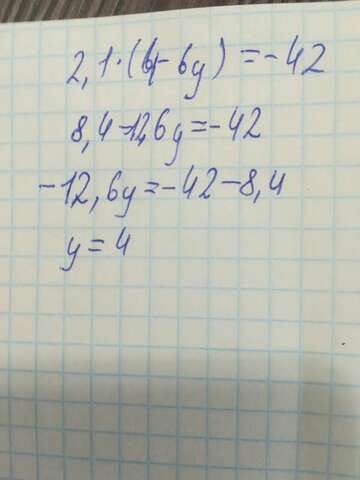 2,1·(4-6y)=-42
8,4-12,6y=-42
-12,6y=-42-8,4
y=4